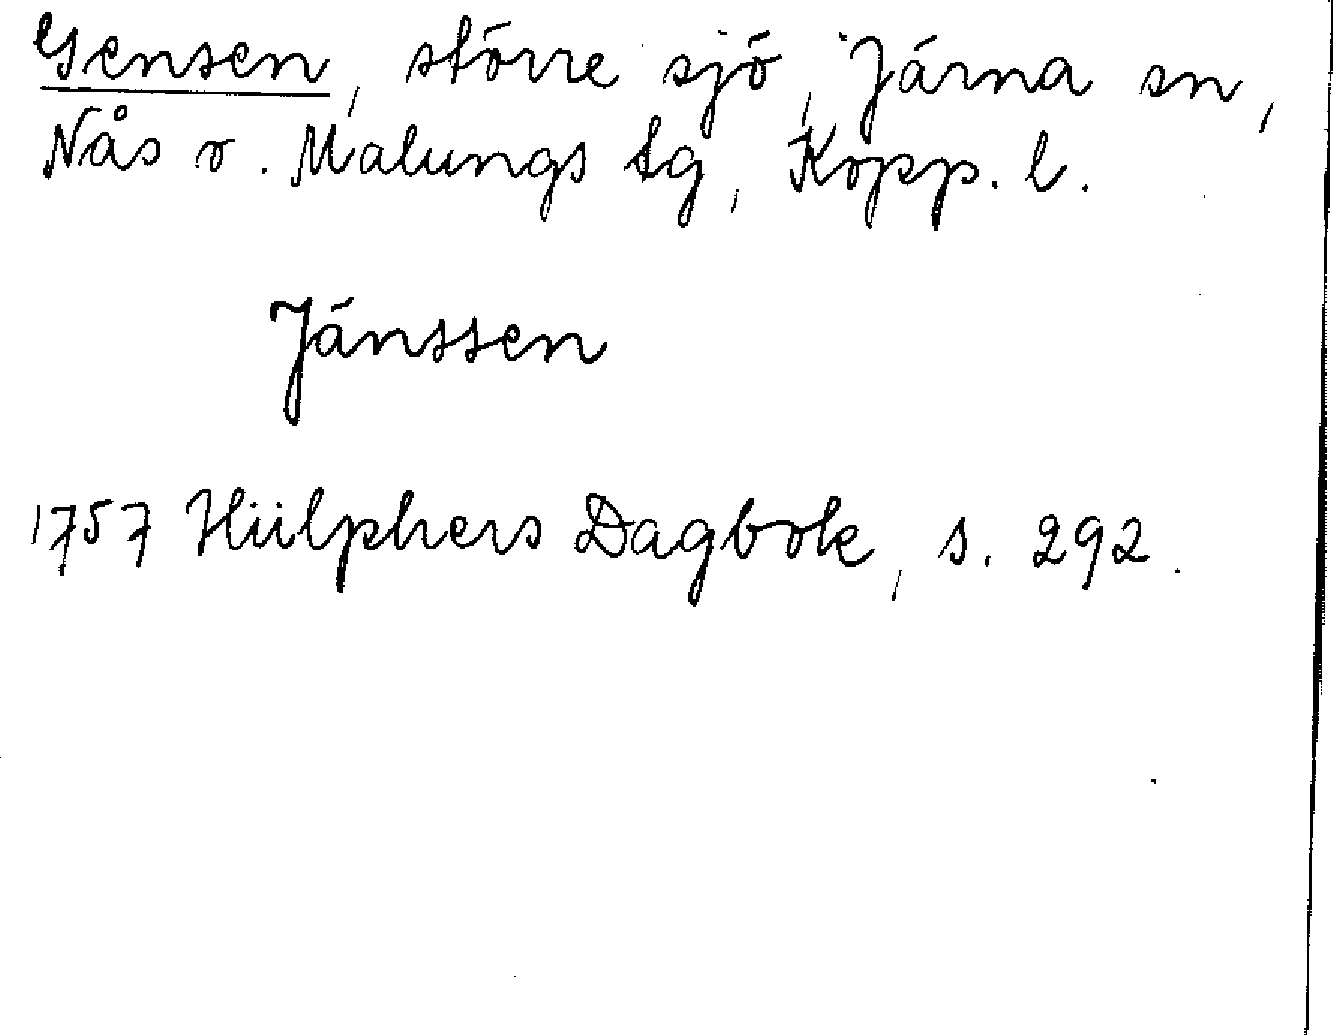 Gensen, större sjö, Järna sn,
Nås o. Malungs tg, Kopp. l.
Jänssen
1757 Hülphers Dagbok, s. 292.